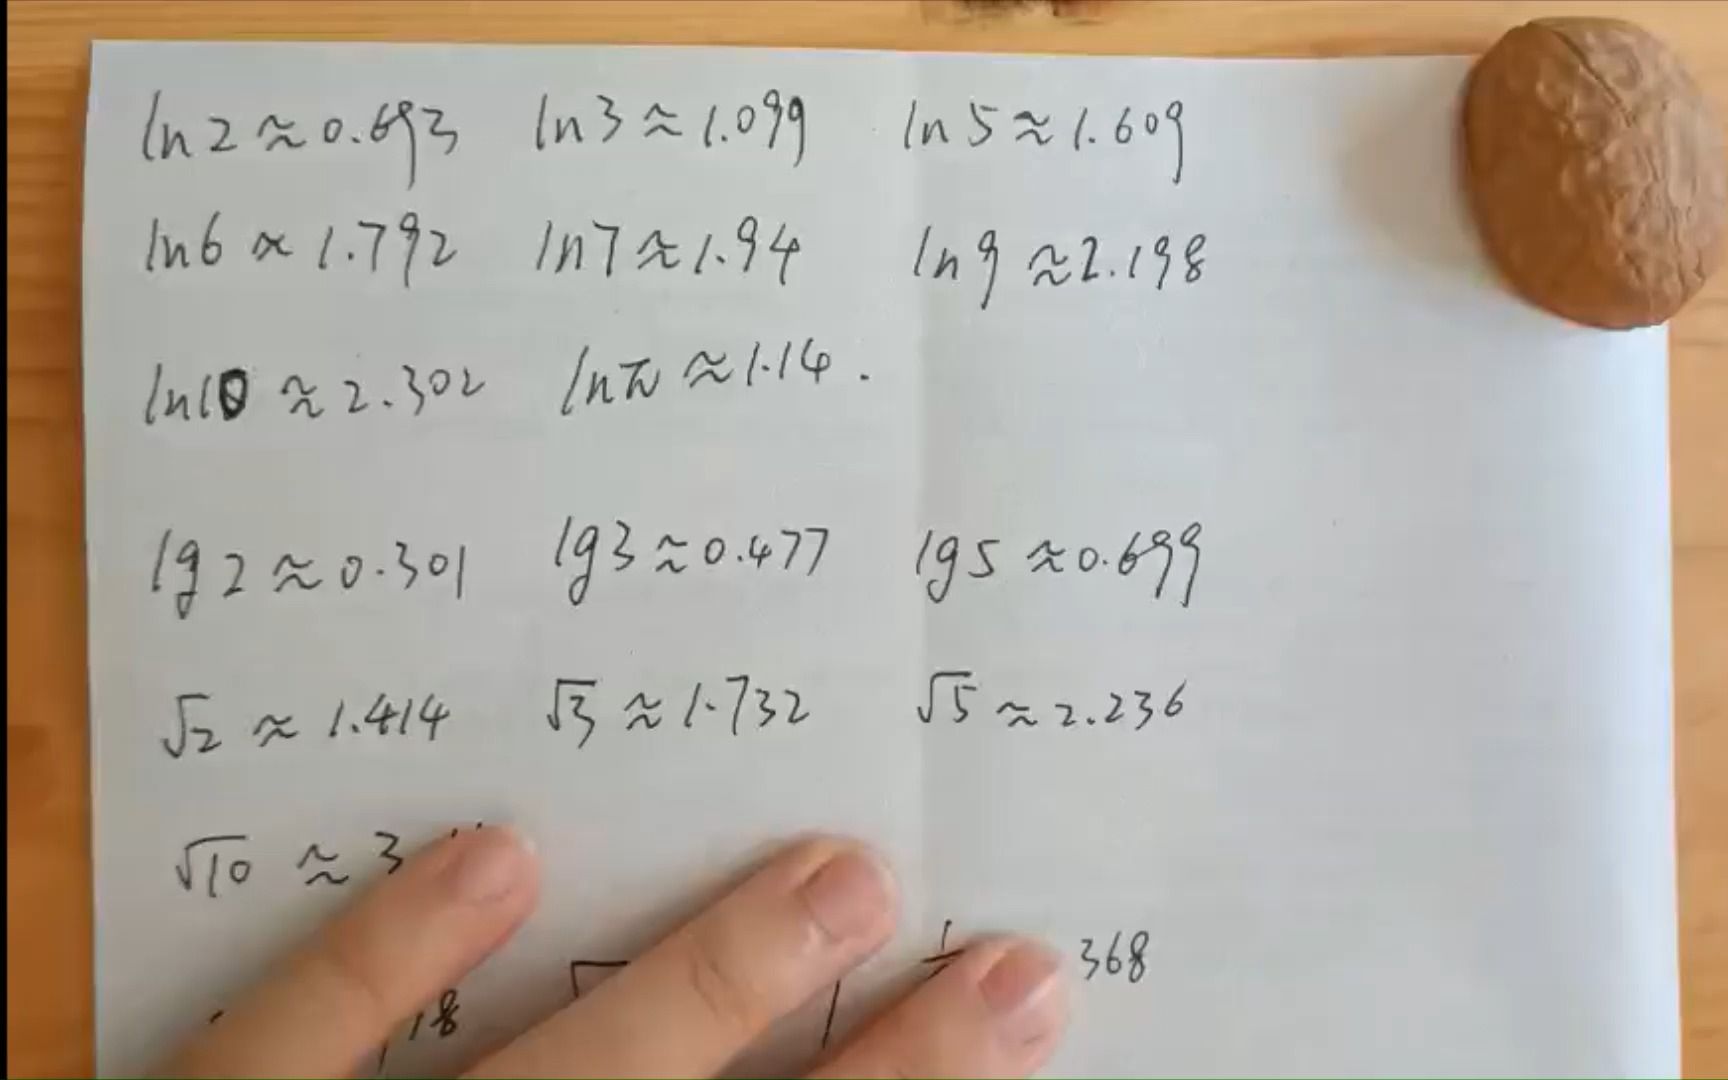 ln2≈0.693 ln3≈1.099 ln5≈1.609
ln6≈1.792 ln7≈1.94 ln9≈2.198
ln10≈2.302 lnπ≈1.14.
lg2≈0.301 lg3≈0.477 lg5≈0.699
√2≈1.414 √3≈1.732 √5≈2.236
√10≈3
18 368